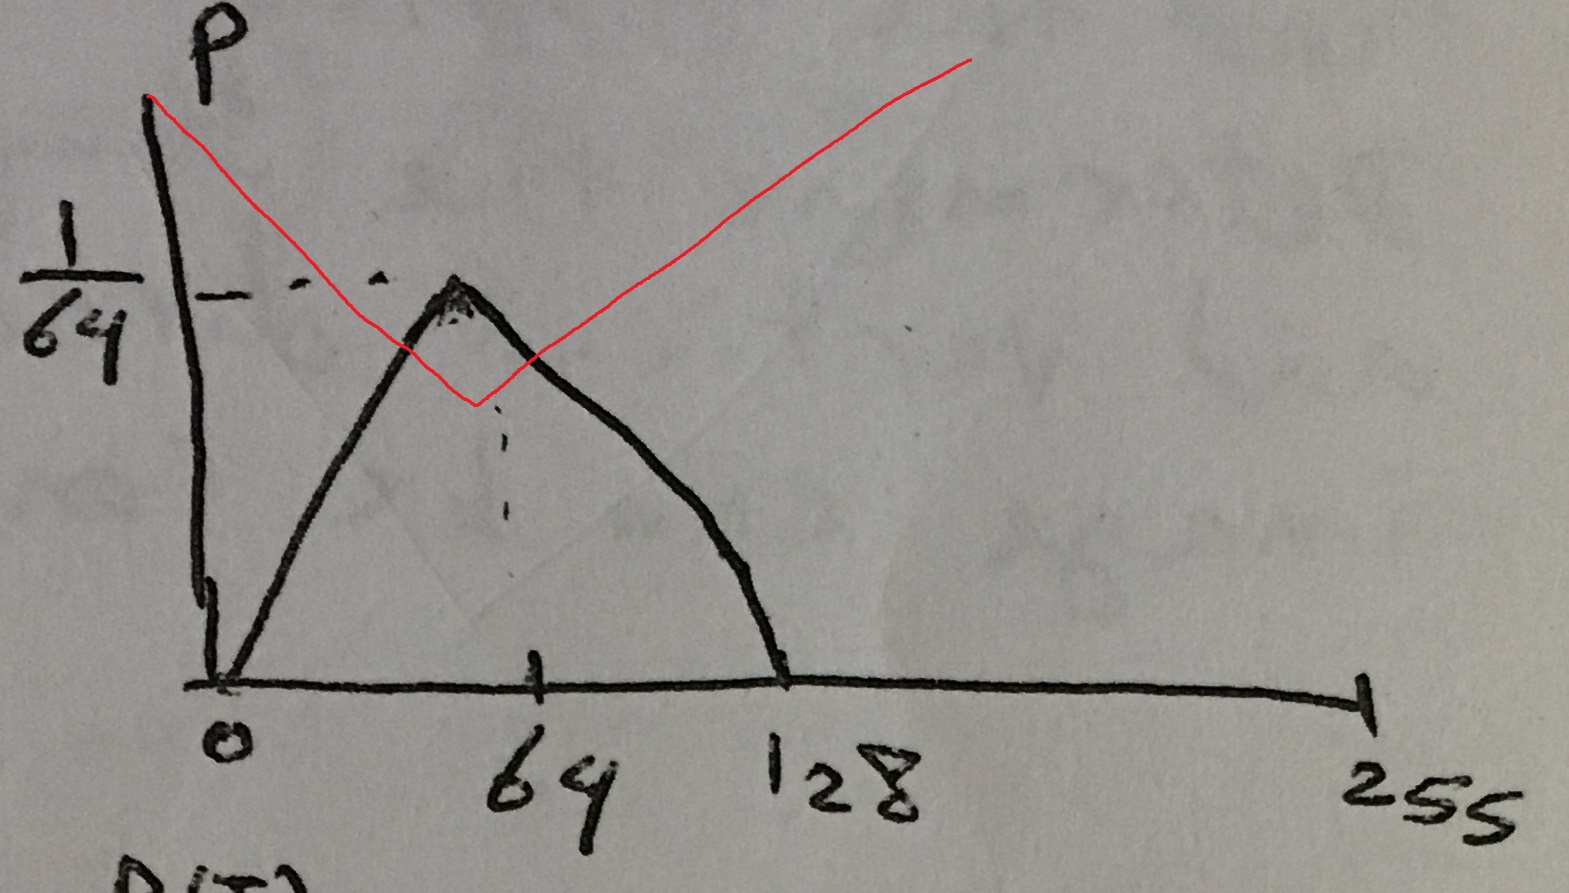 P
1
64
0 64 128 255
P(I)